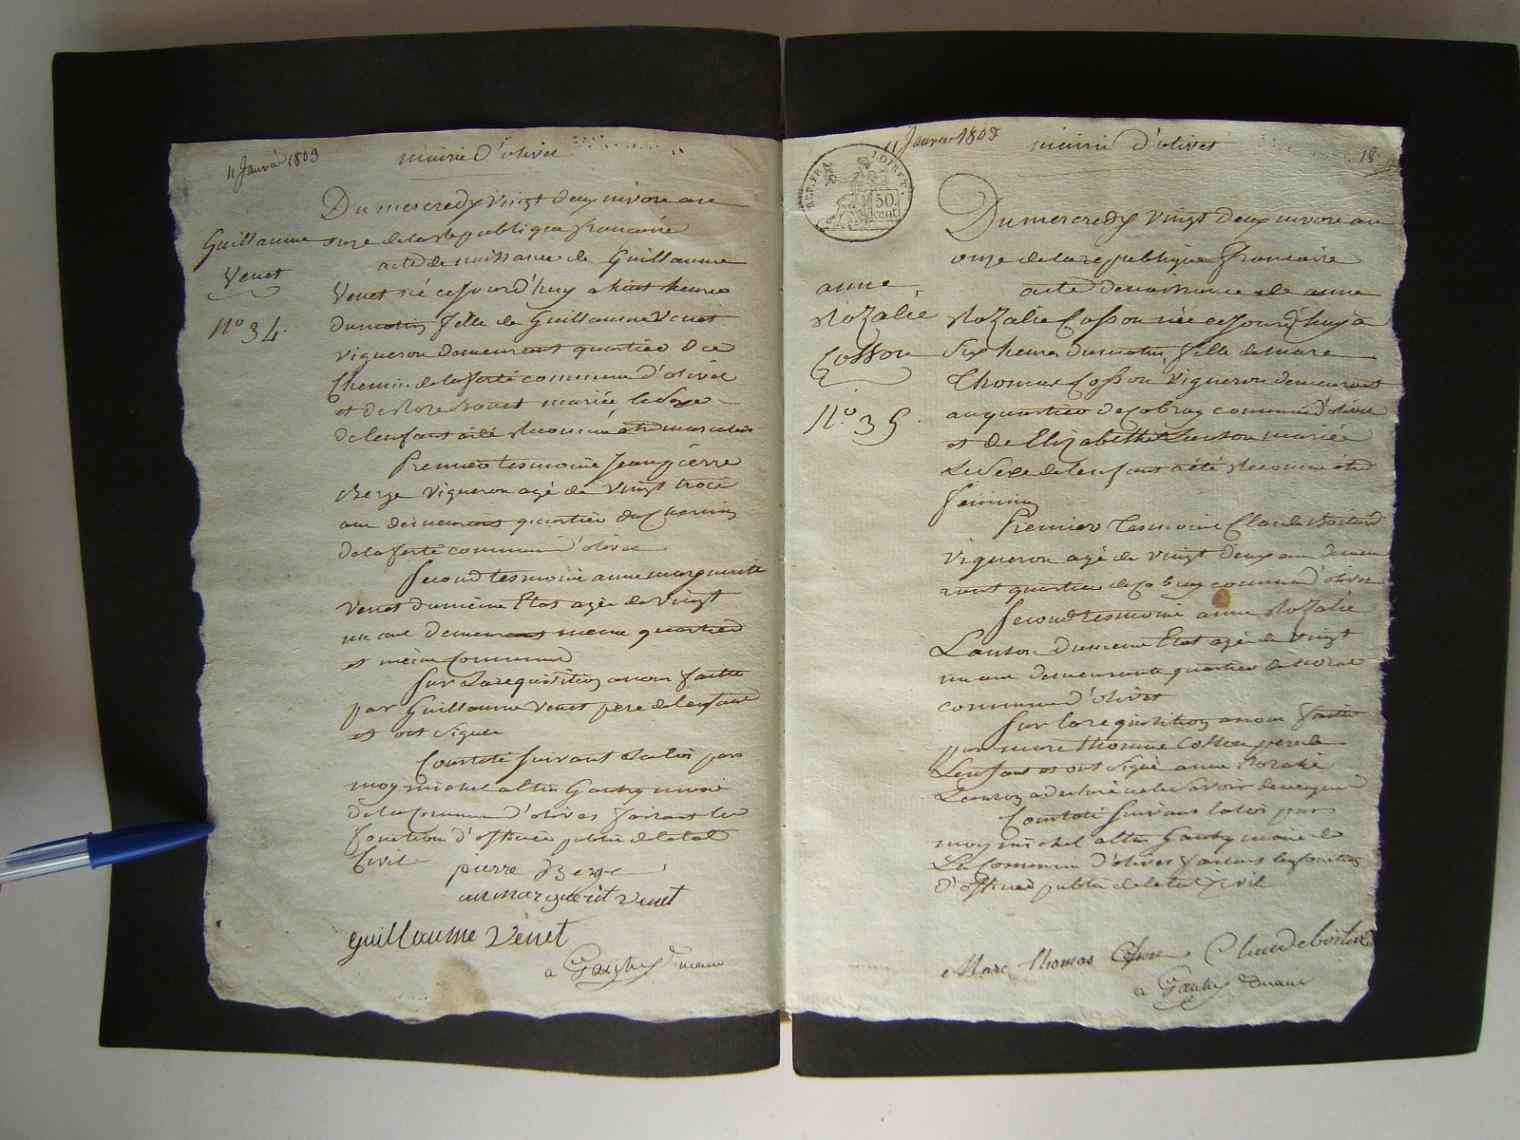 11 Janvier 1803
mairie d'olivet
Du mercredy vingt deux nivose an
onze de la république françaire
Guillaume
Venet
n.o 34.
acte de naissance de Guillaume
Venet né ce jourd'huy a huit heures
du matin fille de Guillaume Venet
vigneron demeurant quartier du
Chemin de la ferté commune d'olivet
et de mariée le sexe
de lenfant a été reconnu être masculin
Premier tesmoine Jean pierre
Berge vigneron agé de vingt trois
ans demeurant quartier du Chemin
de la ferté commune d'olivet
Second tesmoine anne marguerite
Venet du même Etat agée de vingt
un ans demeurant meme quartier
et même Commune
Sur la requisition a nous faitte
par Guillaume Venet pere de lenfant
et ont signer
Constaté suivant la loi par
moy michel altin Gauhy maire
de la Commune d'olivet faisant les
fonction d'officier public de letat
Civil
pierre Berge
anne margueritt venet
guillaume Venet
a Gauhy maire
11 Janvier 1803
mairie d'olivet
18
REP. FRA.
LOIRET.
50
cent
Du mercredy vingt deux nivose an
onze de la republique francaire
anne
Rozalie
Cosson
n.o 35.
acte de naissance de anne
Rozalie Cosson née ce jourd'huy a
six heures du matin fille de marc
Thomas Cosson vigneron demeurant
au quartier de Cobray commune d'olivet
et de Elizabethe Lanson mariée
Le Sexe de lenfant a été reconnu etre
feminin
Premier tesmoine Claude Boitard
vigneron agé de vingt deux ans demeu
rant quartier de Cobray commune d'olivet
Second tesmoine anne Rozalie
Lanson du meme Etat agée de vingt
un ans demeurante quartier
commune d'olivet
Sur la requisition a nous faitte
par marc thomas Cosson pere de
Lenfant et ont signé anne Rozalie
Lanson a declaré ne le savoir
Constaté suivant la loi par
moy michel altin Gauhy maire de
La Commune d'olivet faisant les fonction
d'officier public de letat Civil
Marc thomas Cosson Claude boitard
a Gauhy maire